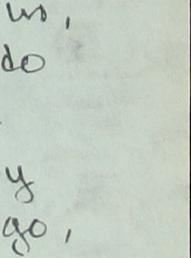 us,
do
y
go,